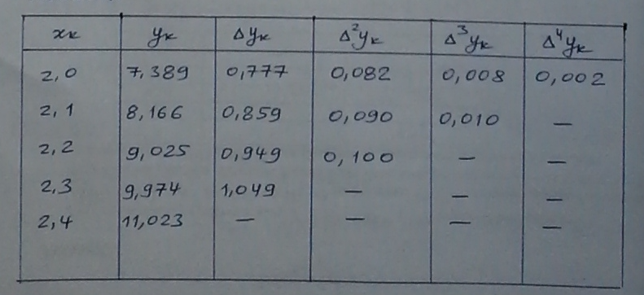 xₖ yₖ Δyₖ Δ²yₖ Δ³yₖ Δ⁴yₖ
2,0 7,389 0,777 0,082 0,008 0,002
2,1 8,166 0,859 0,090 0,010 —
2,2 9,025 0,949 0,100 — —
2,3 9,974 1,049 — — —
2,4 11,023 — — — —